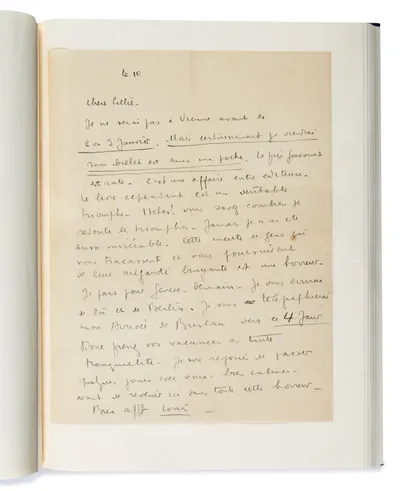 le 10
Chère Cillie.
Je ne serai pas à Vienne avant le
2 ou 3 Janvier. Mais certainement je viendrai
mon billet est dans ma poche. Le prix Goncourt
est raté. C'est une affaire entre éditeurs.
Le livre cependant est un véritable
triomphe. Hélas! vous savez combien je
redoute le triomphe. Jamais je n'ai été
aussi misérable. Cette meute de gens qui
vous tracassent et vous poursuivent
de leur vulgarité bruyante est une horreur.
Je pars pour Genève demain. Je vous écrirai
de là et de Berlin. Je vous télégraphierai
mon arrivée de Breslau vers le 4 Janv
Donc prenez vos vacances en toute
tranquillité. Je me réjouis de passer
quelques jours avec vous. bien calmes.
avant de revenir ici dans toute cette horreur.
Bien aff Louis